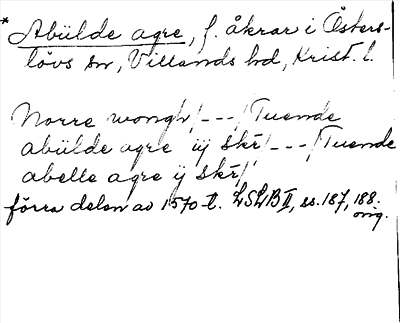 * Abülde agre, f. åkrar i Östers-
lövs sn, Villands hd, Krist. l.
Norre wongh/---/Tuende
abülde agre iij skr/---/Tuende
abelle agre ij skr/
förra delen av 1570-t. LSLB II, ss. 187, 188.
orig.